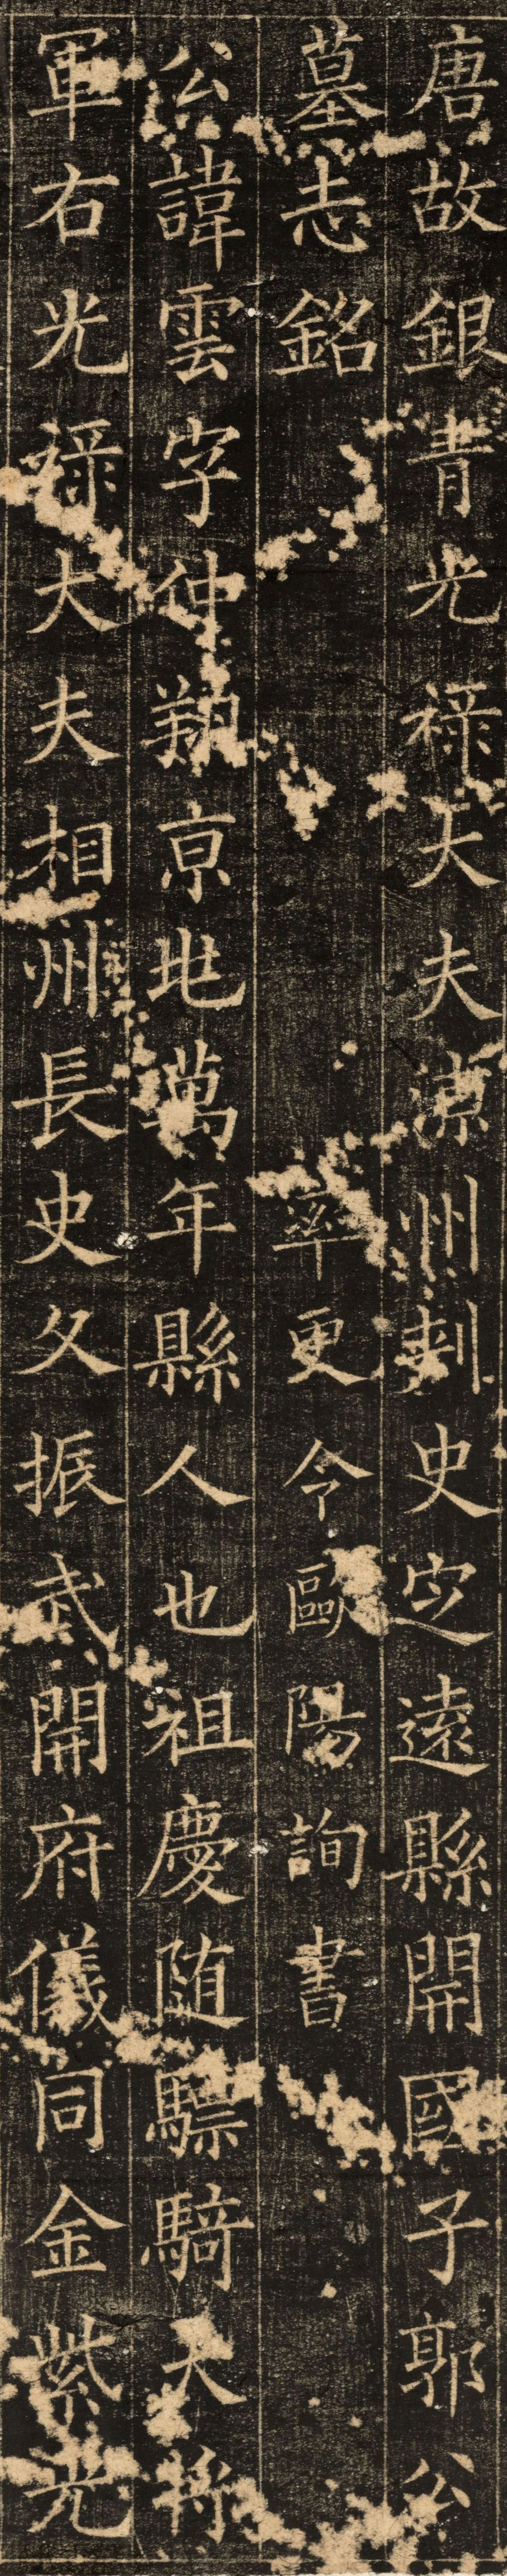 唐故銀青光祿大夫涼州刺史定遠縣開國子郭公
墓志銘 率更令歐陽詢書
公諱雲字仲翔京兆萬年縣人也祖慶随驃騎大將
軍右光祿大夫相州長史父振武開府儀同金紫光